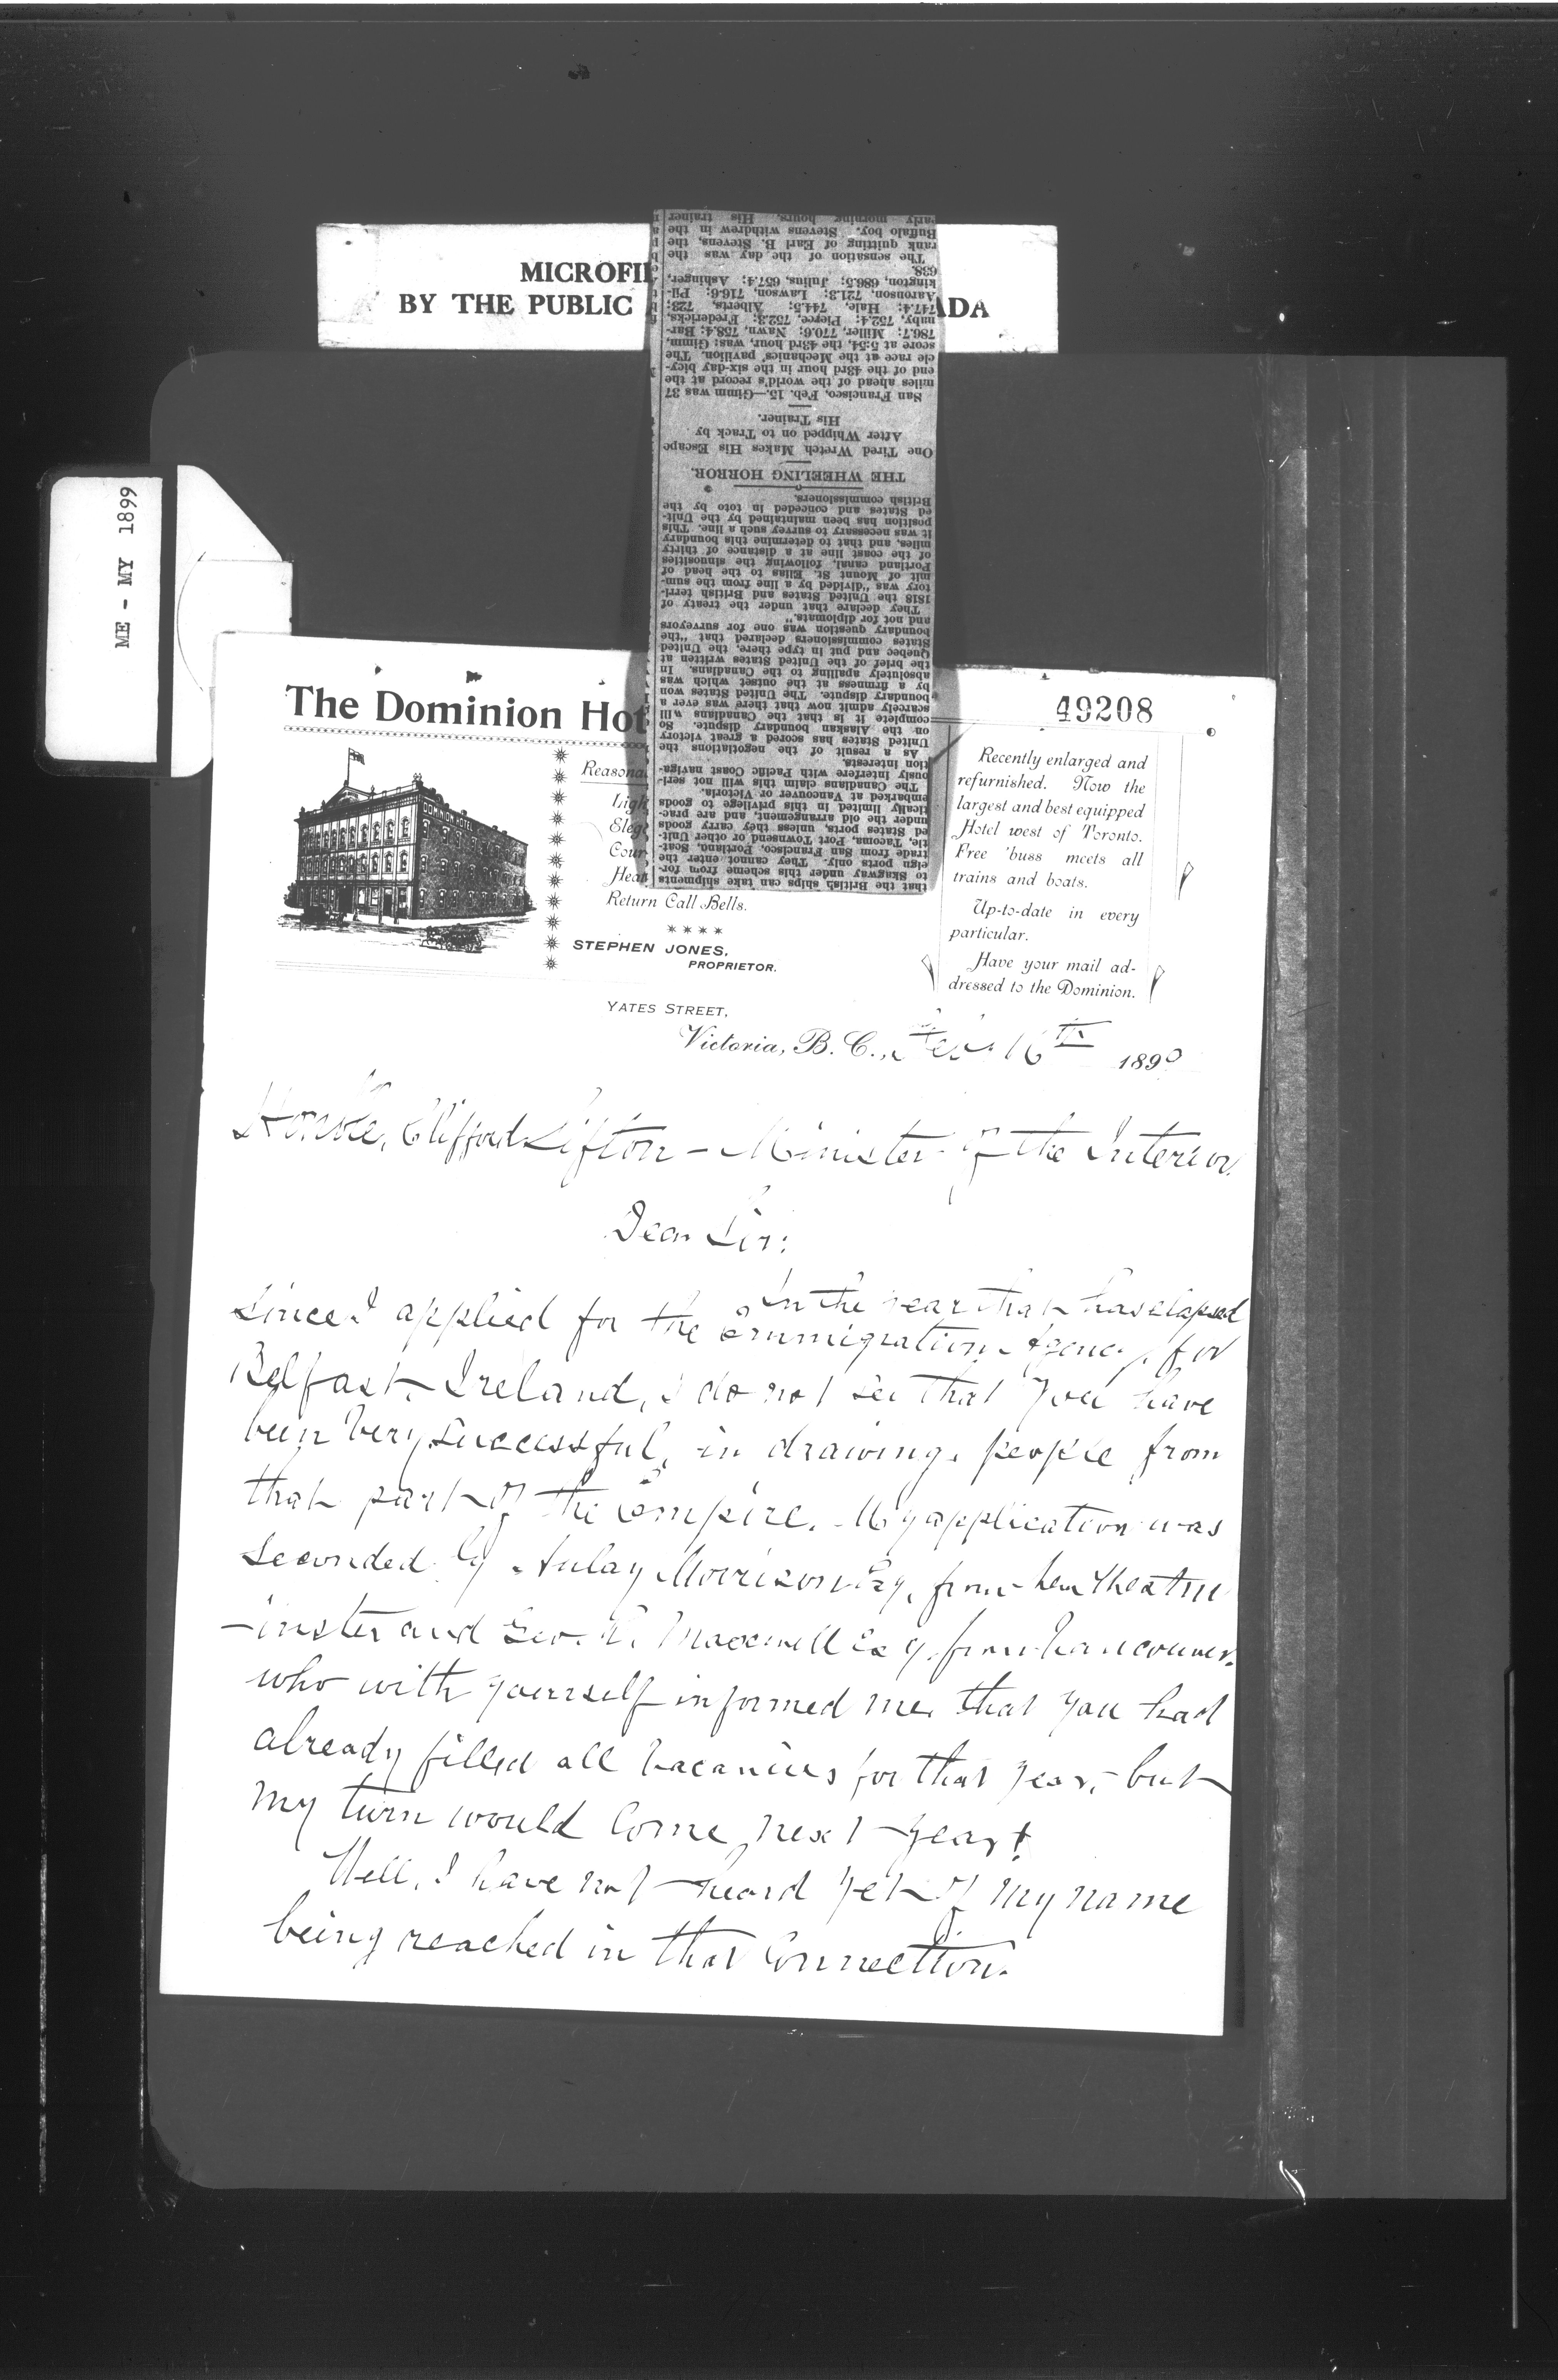 MICROFI
BY THE PUBLIC
ADA
ME - MY 1899
that the British ships can take shipments
to Skagway under this scheme from for-
eign ports only. They cannot enter the
trade from San Francisco, Portland, Seat-
tle, Tacoma, Port Townsend or other Unit-
ed States ports, unless they carry goods
under the old arrangement, and are prac-
tically limited in this privilege to goods
embarked at Vancouver or Victoria.
The Canadians claim this will not seri-
ously interfere with Pacific Coast naviga-
tion interests.
As a result of the negotiations the
United States has scored a great victory
on the Alaskan boundary dispute. So
complete it is that the Canadians will
scarcely admit now that there was ever a
boundary dispute. The United States won
by a firmness at the outset which was
absolutely apalling to the Canadians. In
the brief of the United States written at
Quebec and put in type there, the United
States commissioners declared that "the
boundary question was one for surveyors
and not for diplomats."
They declare that under the treaty of
1818 the United States and British terri-
tory was "divided by a line from the sum-
mit of Mount St. Elias to the head of
Portland canal, following the sinuosities
of the coast line at a distance of thirty
miles, and that to determine this boundary
it was necessary to survey such a line. This
position has been maintained by the Unit-
ed States and conceded in toto by the
British commissioners.
THE WHEELING HORROR.
One Tired Wretch Makes His Escape
After Whipped on to Track by
His Trainer.
San Francisco, Feb. 15.—Gimm was 37
miles ahead of the world's record at the
end of the 43rd hour in the six-day bicy-
cle race at the Mechanics' pavilion. The
score at 5:54, the 43rd hour, was: Gimm,
786.7; Miller, 770.6; Nawn, 758.4; Bar-
naby, 752.4; Pierce, 752.3; Fredericks,
747.4; Hale, 744.5; Alberts, 723;
Aaronson, 721.3; Lawson, 716.6; Pil-
kington, 686.5; Julius, 657.4; Ashinger,
638.
The sensation of the day was the
rank quitting of Earl B. Stevens, the
Buffalo boy. Stevens withdrew in the
early morning hours. His trainer
49208
The Dominion Hot
DOMINION HOTEL
Reasona
Ligh
Eleg
Cour
Heat
Return Call Bells.
STEPHEN JONES,
PROPRIETOR.
Recently enlarged and
refurnished. Now the
largest and best equipped
Hotel west of Toronto.
Free 'buss meets all
trains and boats.
Up-to-date in every
particular.
Have your mail ad-
dressed to the Dominion.
YATES STREET,
Victoria, B. C., Feb. 16th 1899
Honble, Clifford Sifton – Minister of the Interior.
Dear Sir:
In the year that has elapsed
since I applied for the Emmigration Agency, for
Belfast, Ireland, I do not see that you have
been very successful, in drawing people from
that part of the Empire. My application was
seconded by Aulay Morrison Esq, from New Westm
-inster and Geo. R. Maxwell Esq. from Vancouver.
who with yourself informed me that you had
already filled all vacancies for that year, but
my turn would come next year!
Well, I have not heard yet of my name
being reached in that connection.